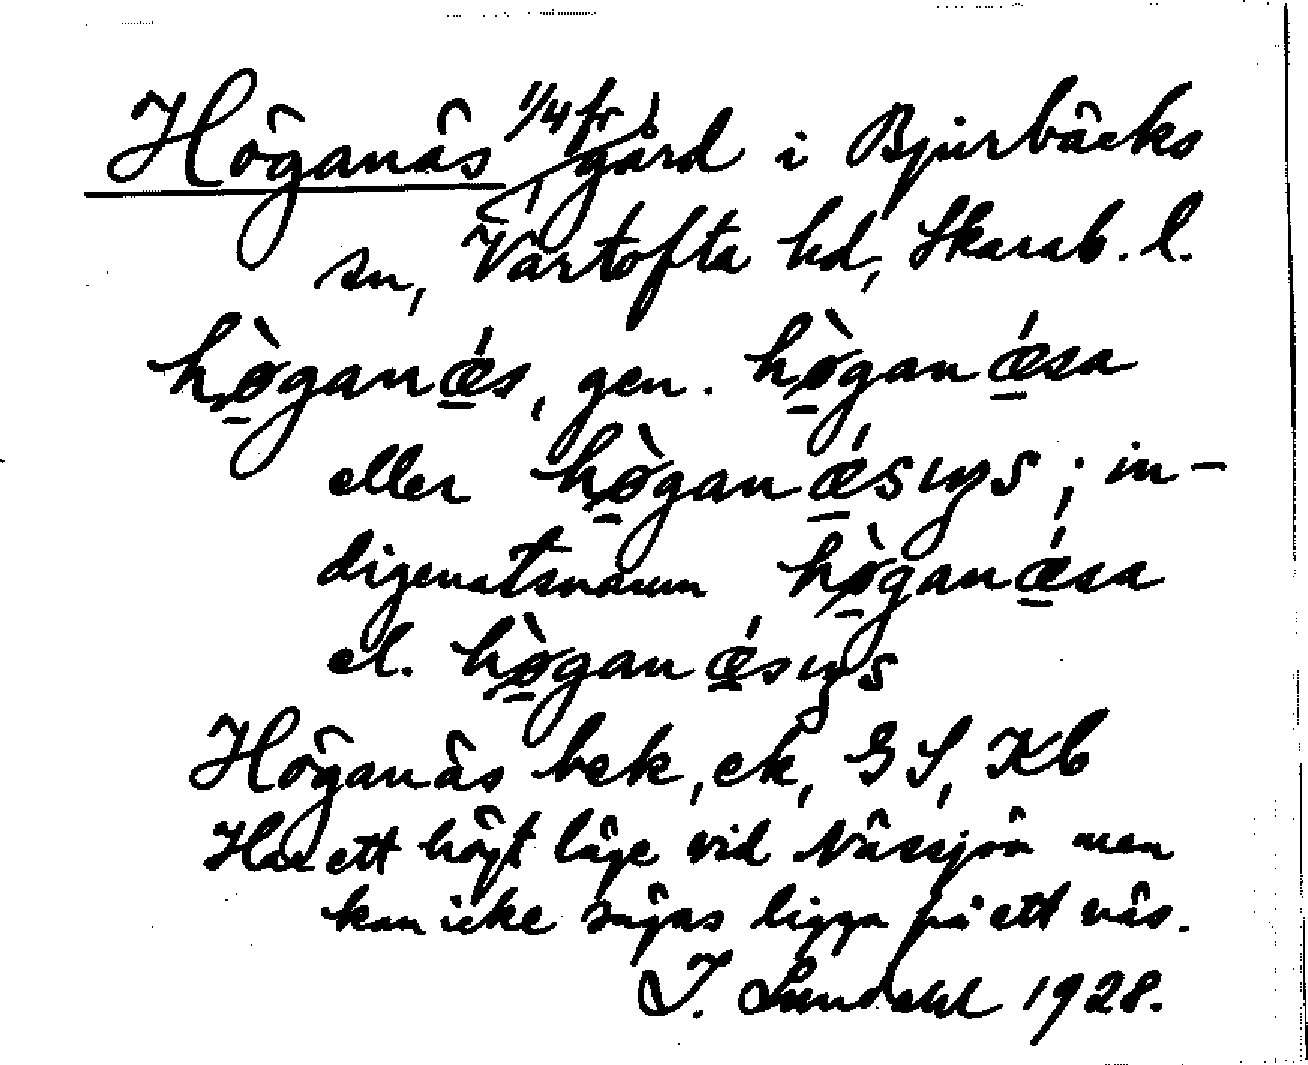 Höganäs 1/4 fr gård i Bjurbäcks
sn, Vartofta hd, Skarab. l.
hò̲ganǽ̲s, gen. hò̲ganǽ̲sa
eller hò̲ganǽ̲sıŋs; in-
digenatsnamn hò̲ganǽ̲sa
el. hò̲ganǽ̲sıŋs
Höganäs bek, ek, GS, Kb
Har ett högt läge vid Nässjön men
kan icke sägas ligga på ett näs.
I. Lundahl 1928.